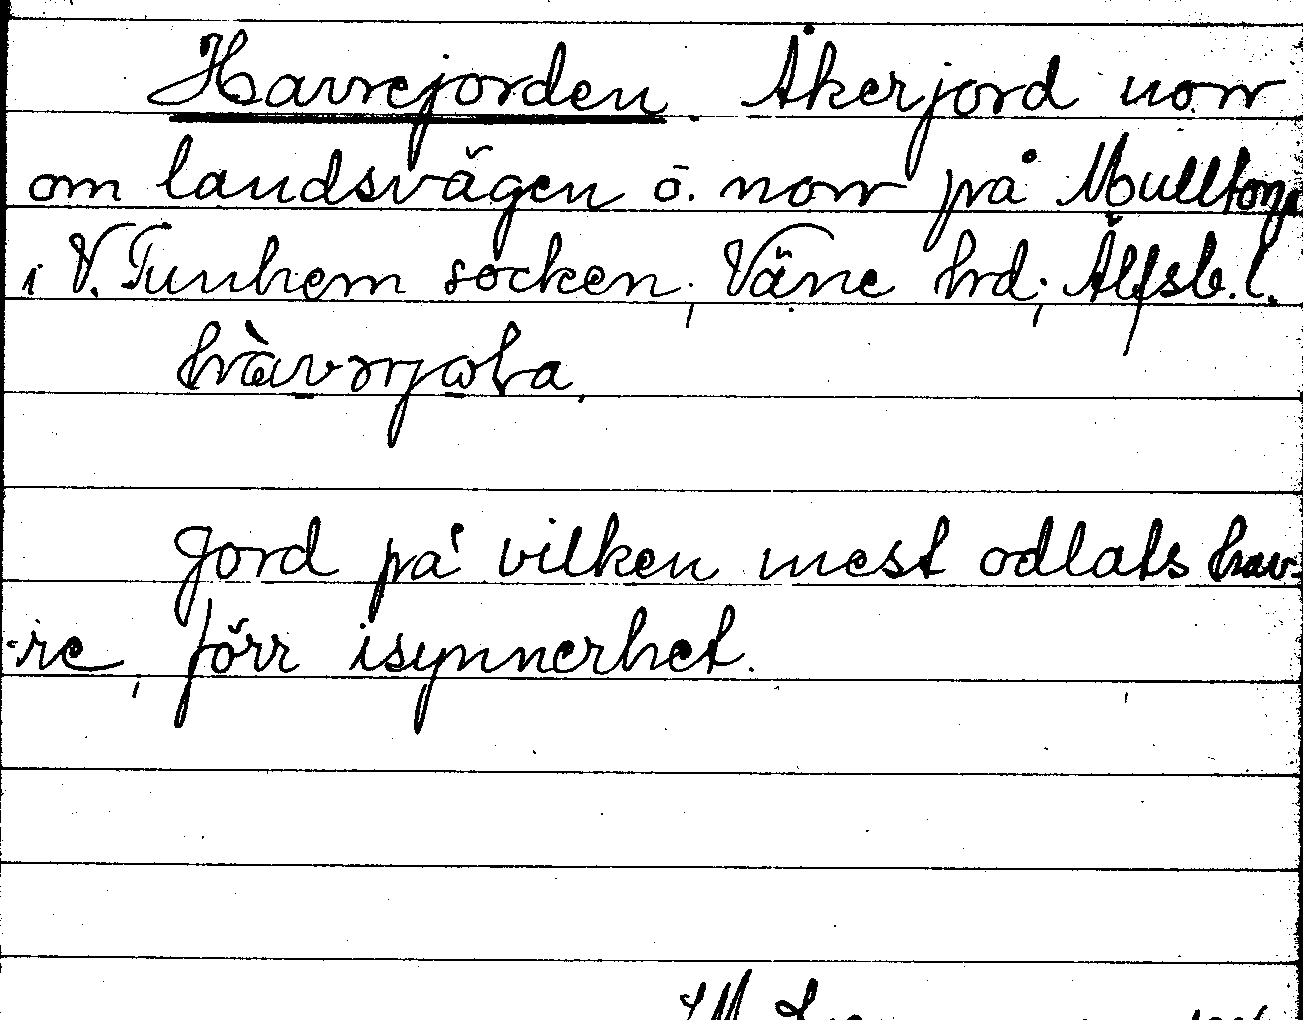 Havrejorden. Åkerjord norr
om landsvägen o. norr på Mulltorp
i V. Tunhem socken, Väne hrd; Älfsb. l.
Jord på vilken mest odlats hav-
-re, förr isynnerhet.